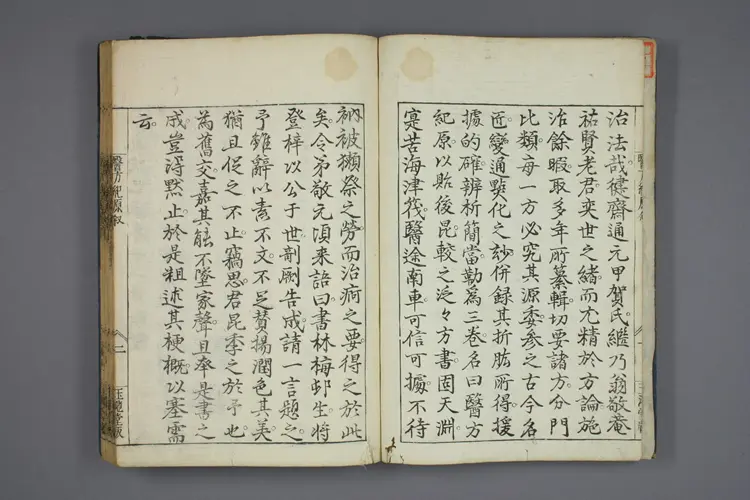 治法哉健齋通元甲賀氏繼乃翁敬菴
祐賢老君奕世之緒而尤精於方論施
治餘暇取多年所纂輯切要諸方分門
比類每一方必究其源委參之古今名
匠變通奌化之玅併録其折肱所得援
據的確辨析簡當勒為三卷名曰醫方
紀原以貽後昆較之泛々方書固天淵
寔苦海津筏醫途南車可信可據不待
衲被獺祭之勞而治痾之要得之於此
矣令弟敬元須来語曰書林梅邨生将
登梓以公于世剞劂告成請一言題之
予雖辭以素不文不足賛揚潤色其美
猶且促之不止竊思君昆季之於予也
為舊交嘉其能不墜家聲且卒是書之
成豈得默止於是粗述其梗概以塞需
云
醫方紀原叙
二